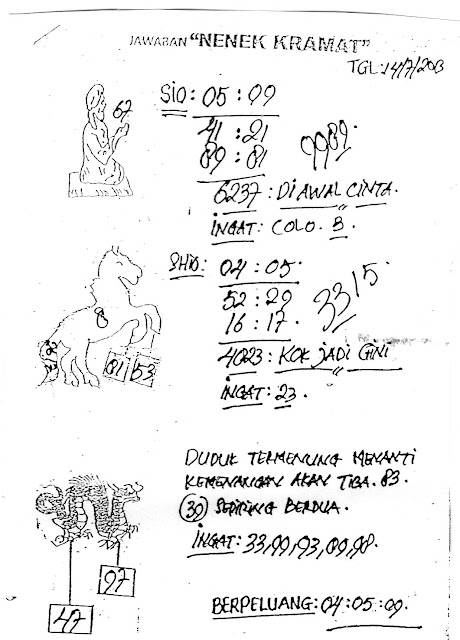 JAWABAN "NENEK KRAMAT"
TGL:14/7/2013
67
SIO: 05 : 09
41 : 21
89 : 81
9989.
6237 : DI AWAL CINTA.
INGAT: COLO. 8.
SHIO: 04 : 05.
52 : 29
16 : 17.
3315.
8
81 53
4023: KOK JADI GINI
INGAT: 23.
DUDUK TERMENUNG MENANTI
KEMENANGAN AKAN TIBA. 83.
39 SEPIRING BERDUA.
INGAT: 33,99,93,89,98.
97
47
BERPELUANG: 04:05:09.